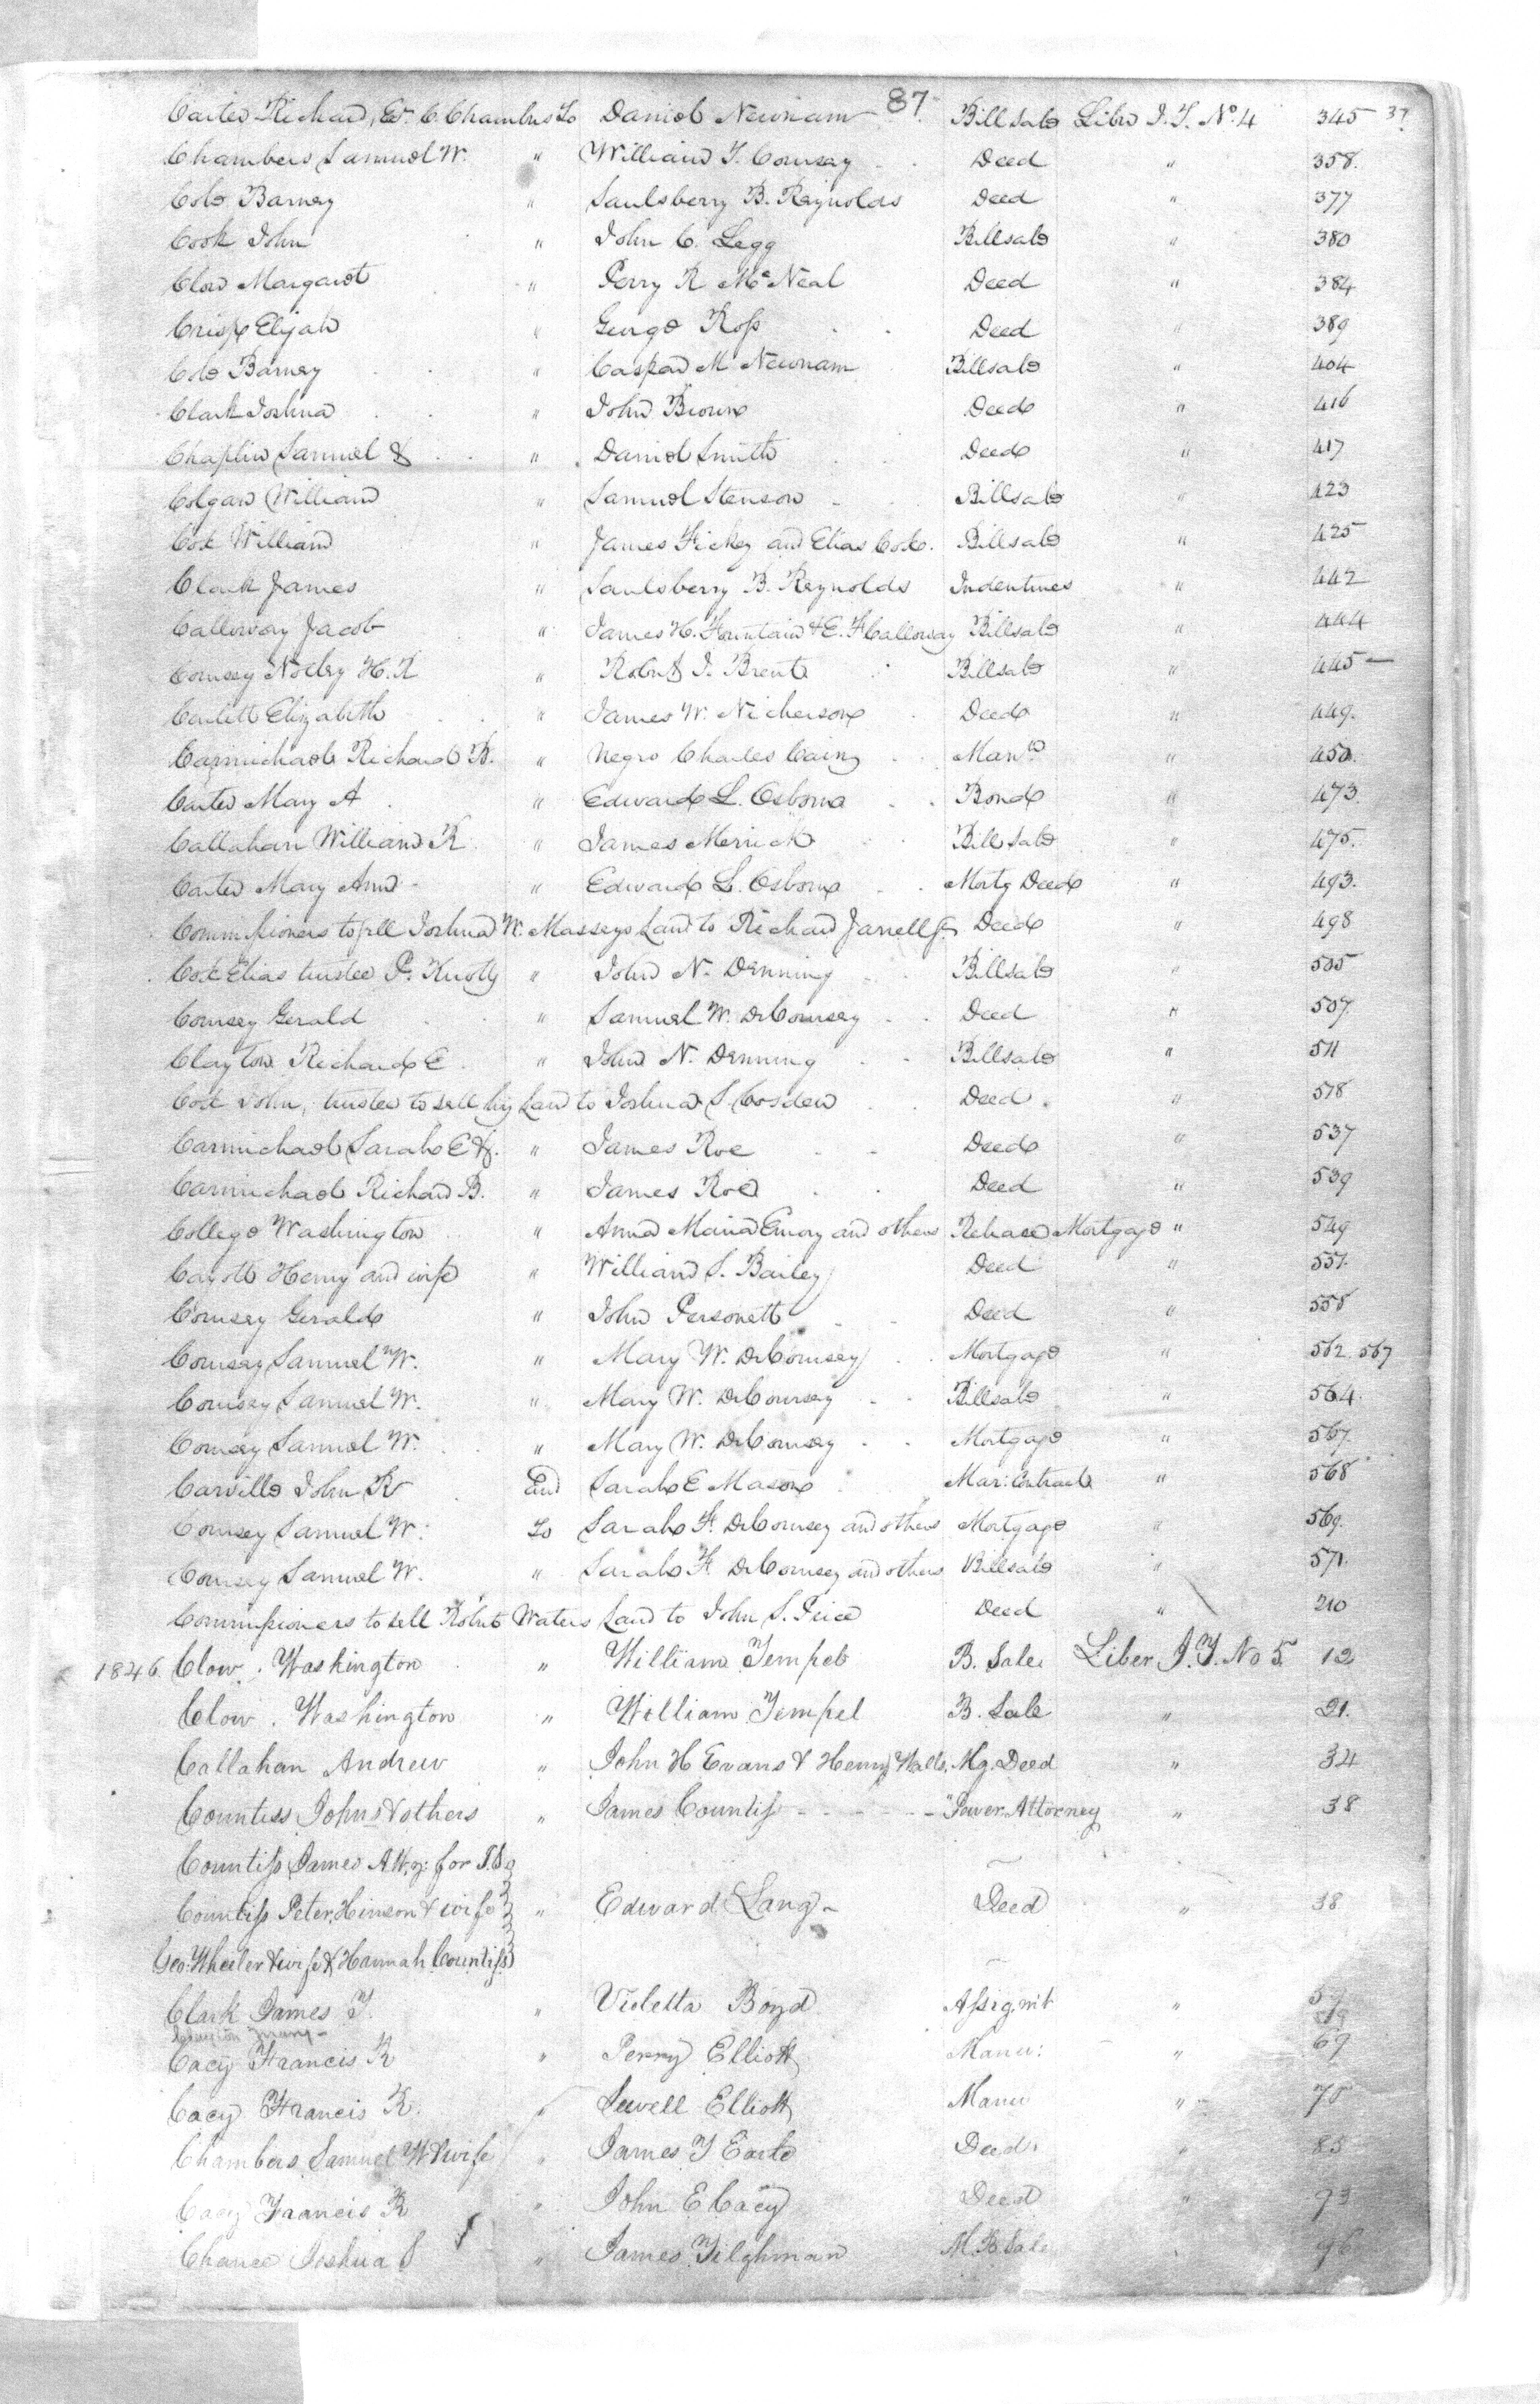 87
37
Carter Richard, Ex. C. Chambers To Daniel Newnam Bill Sale Libre J. T. No. 4 345
Chambers Samuel W. " William T. Comsey Deed " 358.
Cole Barney " Saulsberry B. Reynolds Deed " 377
Cook John " John C. Legg Billsale " 380
Clow Margaret " Perry R McNeal Deed " 384
Crisp Elijah " George Ross Deed " 389
Cole Barney " Caspar M Newnam Billsale " 404
Clark Joshua " John Brown Deed " 416
Chaplin Samuel & " Daniel Smith Deed " 417
Colgan William " Samuel Stenson Billsale " 423
Cox William " James Hickey and Elias Cox. Billsale " 425
Clark James " Saulsberry B. Reynolds Indentures " 442
Calloway Jacob " James H. Fountain & E. F Calloway Billsale " 444
Comsey Notley H. R " Robert J. Brent Billsale " 445 —
Elizabeth " James W. Nicherson Deed " 449.
Carmichael Richard B. " Negro Charles Cainy Manu. " 450.
Carter Mary A " Edward L. Osborne Bond " 473.
Callahan William R " James Merrick Bill Sale " 475.
Carter Mary Ann " Edward L. Osborne Mortg Deed " 493.
Commissioners to sell Joshua W. Masseys Land to Richard Jarrell Jr. Deed " 498
Cox Elias trustee P. Knotts " John N. Denning Billsale " 505
Comsey Gerald " Samuel W. DeComsey Deed " 507.
Clayton Richard E " John N. Denning Billsale " 511
Cox John, trustee to sell his Land to Joshua S. Cosden Deed " 518
Carmichael Sarah E &. " James Roe Deed " 537
Carmichael Richard B. " James Roe Deed " 539
College Washington " Anna Maria Emory and others Release Mortgage " 549
Henry and wife " William S. Bailey Deed " 551.
Comsey Gerald " John Personett Deed " 558
Comsey Samuel W. " Mary W. DeComsey Mortgage " 562. 567
Comsey Samuel W. " Mary W. DeComsey Billsale " 564.
Comsey Samuel W. " Mary W. DeComsey Mortgage " 567.
Carville John R and Sarah E Mason Mar: Contract " 568
Comsey Samuel W. To Sarah F. DeComsey and others Mortgage " 569.
Comsey Samuel W. " Sarah F. DeComsey and others Billsale " 571.
Commissioners to sell Robert Waters Land to John S. Price Deed " 210
1846. Clow. Washington " William Tempel B. Sale. Liber J. T. No 5. 12
Clow. Washington " William Tempel B. Sale " 21.
Callahan Andrew " John H Evans & Henry Walls. Mg. Deed " 34
Countess John & others " James Countiss - - - - - - Power Attorney " 38
Countiss James Atty: for
Countiss Peter, Hinson & wife " Edward Lang - Deed " 38
Geo: Wheeler & wife & Hannah Countiss
Clark James T. " Violetta Boyd Assignmt "
Cacy Francis R " Perry Elliott Manu: " 69
Cacy Francis R. " Sewell Elliott Manu " 70
Chambers Samuel W & wife " James T Earle Deed. " 85
Cacy Francis R " John E Cacy Deed " 93
Chance Joshua S " James Tilghman M. B. Sale " 96